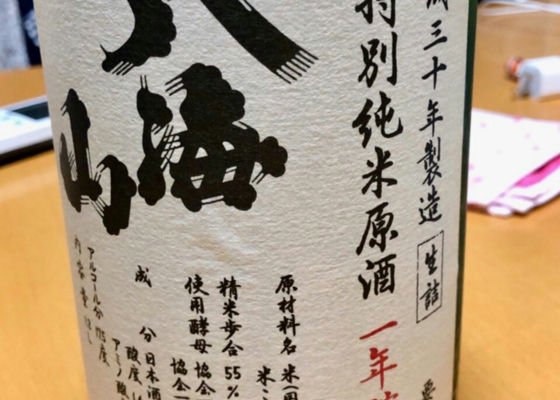 成三十年製造
生詰
特別純米原酒
一年
八海山
原材料名 米(国
米こ
精米歩合 55%
使用酵母 協会
成分 日本酒
酸度
アミノ酸
アルコール分 17.5度
内容量